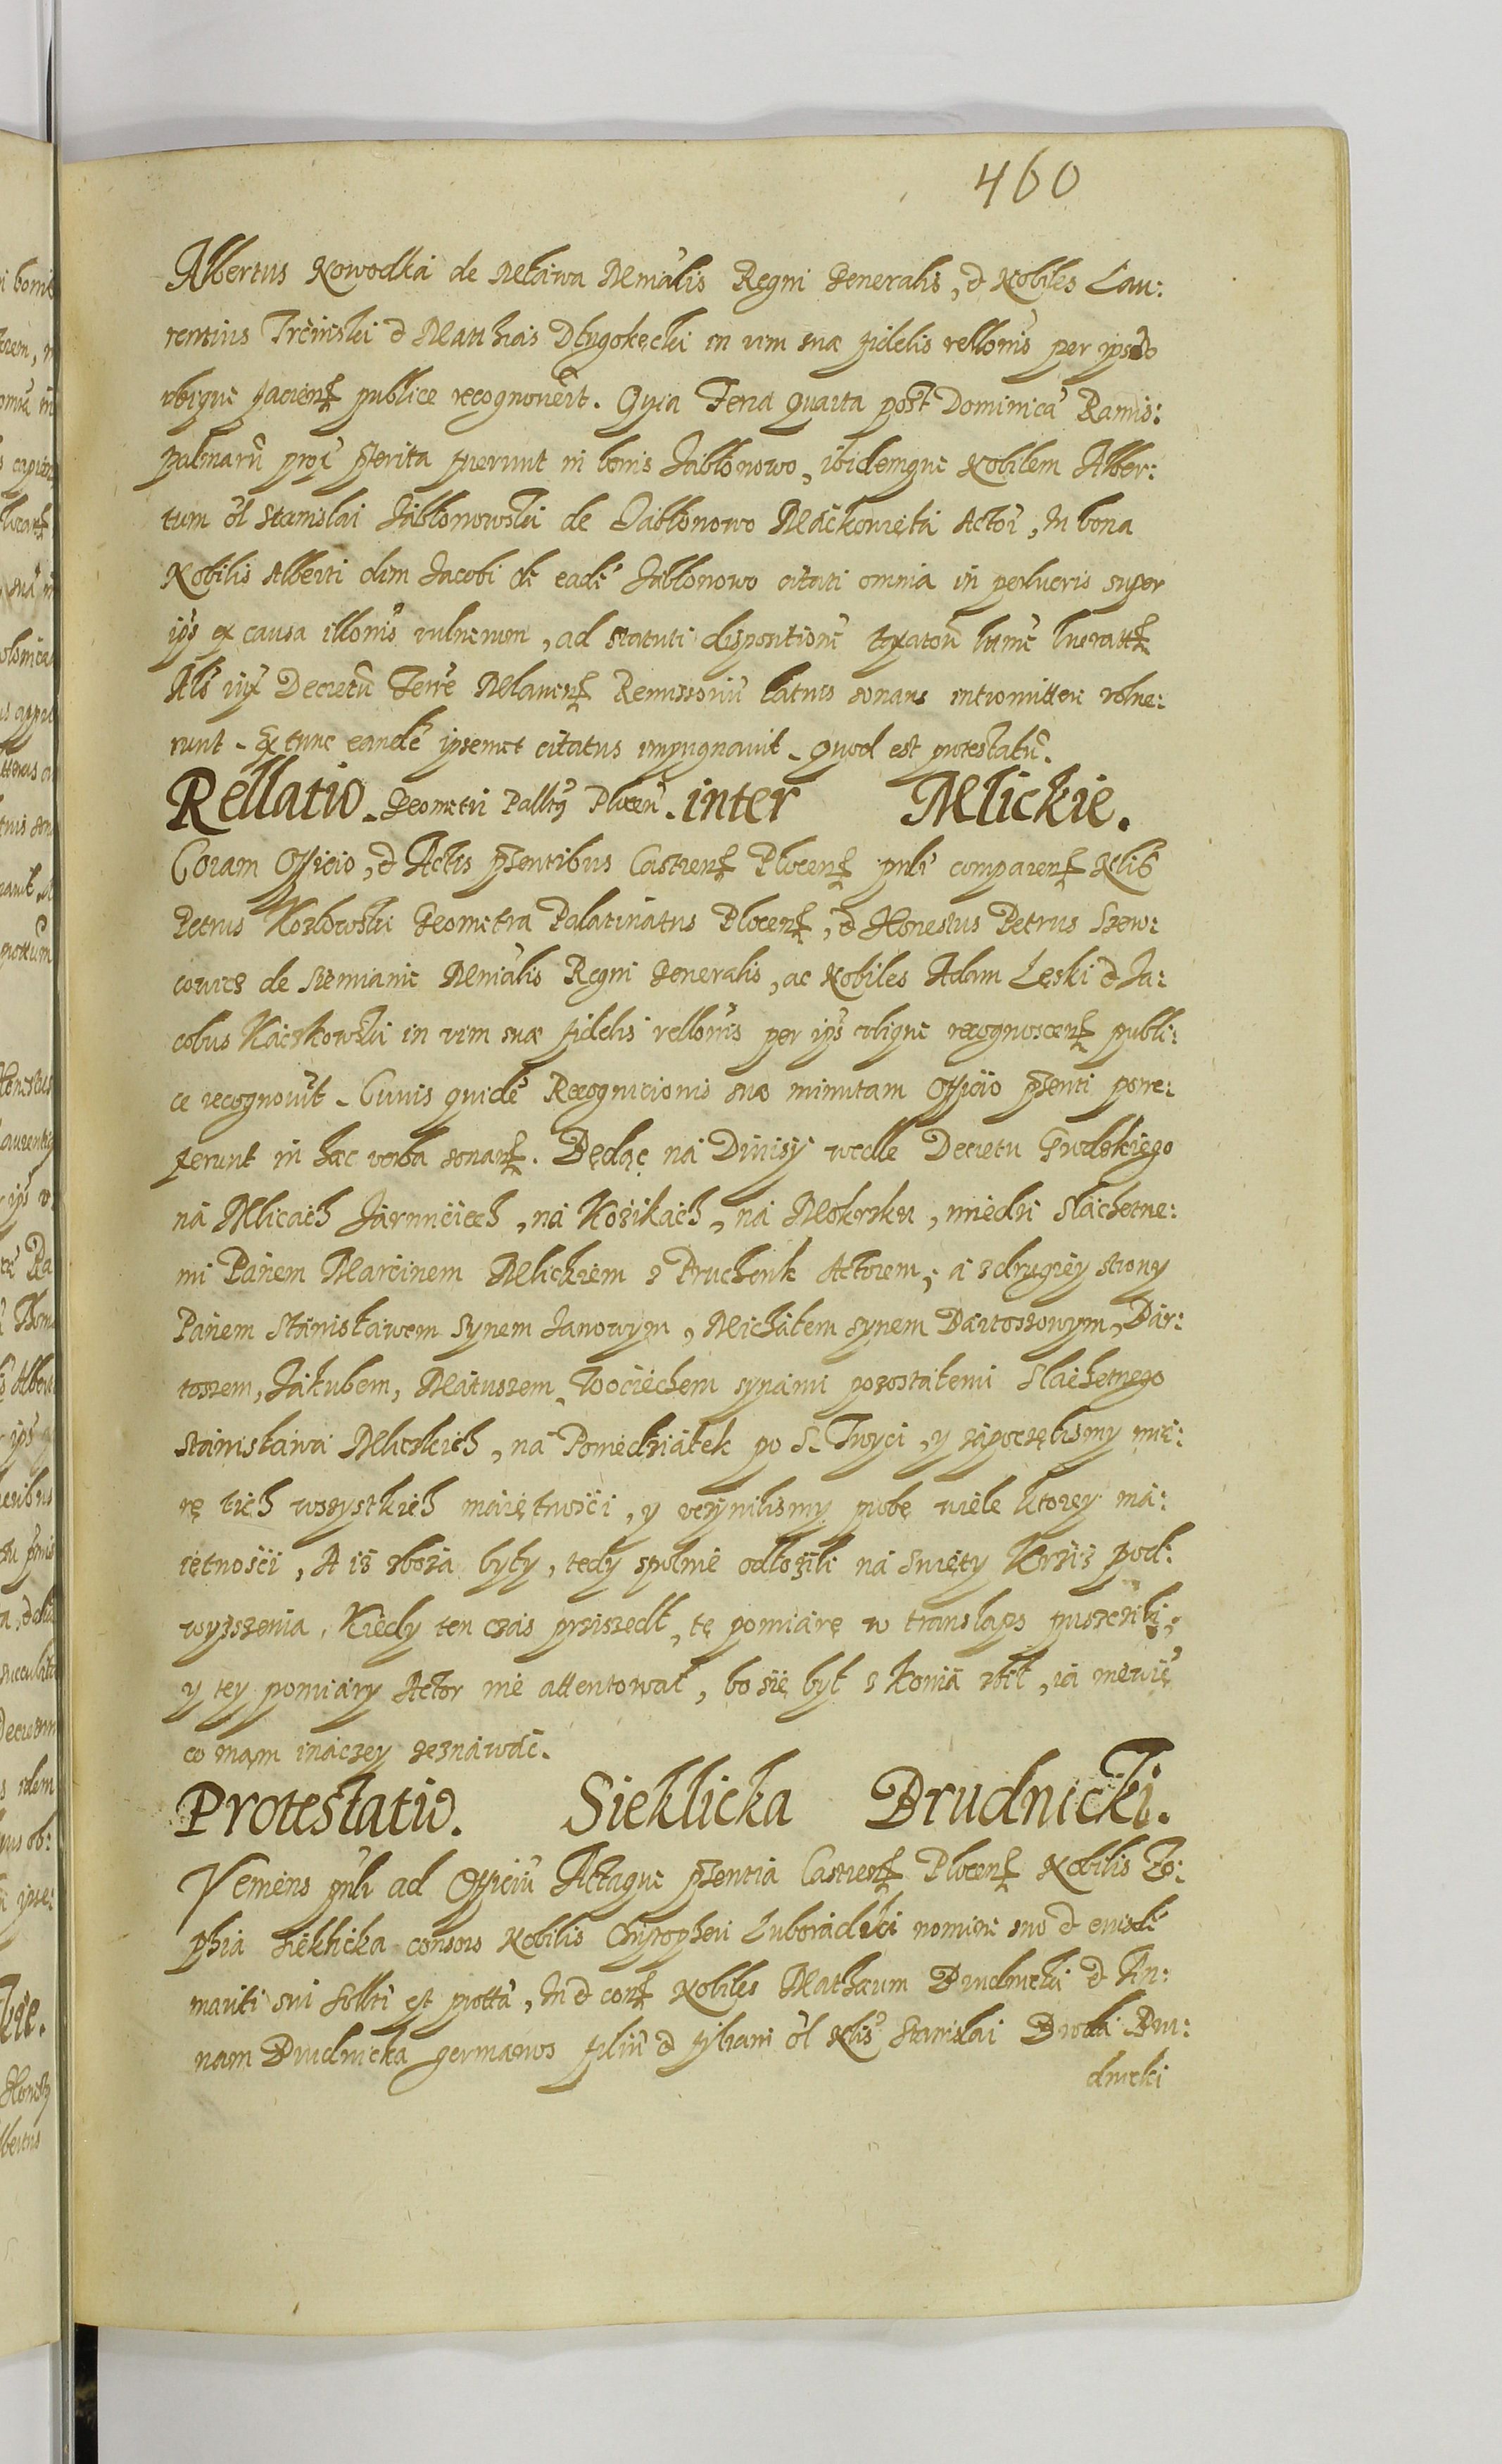 460
Albertus Nowodka de Mława Mnialis Regni Generalis, & Nobiles Lau:
rentius Trcinski & Matthias Dłygołęcki in vim suæ fidelis rellonis per ipso
ubique facien publice recognoverūt. Quia Feria Quarta post Dominicā Ramis:
palmarū proxī pterita fuerunt in bonis Jabłonowo, ibidemque Nobilem Alber:
tum ol Stanislai Jabłonowski de Jabłonowo Maćkowięta Actoī, In bona
Nobilis Alberti olim Jacobi de eadē Jabłonowo citati omnia in polucris super
ijs ex causa illonis vulnerum, ad statuti dispositionē
Als iux Decretū Terrē Mlavien Remissoriū latius sonans intromittere volue:
runt. Ex tunc eandē ipsemet citatus impugnavit. Quod est protestatū.
Rellatio. Geometri Palltus Plocen. inter Mlickie.
Coram Officio, & Actis psentibus Castren Plocen pnlr comparen Nlis
Petrus Kozłowski Geometra Palatinatus Plocen, & Honestus Petrus Szew:
cowicz de Siemianie Mnialis Regni Generalis, ac Nobiles Adam Lęski & Ja:
cobus Kaczkowski in vim suæ fidelis rellonis per ips ubique recognoscen publi:
ce recognovit. Cuius quidē Recognicionis suæ minutam Officio psenti porre:
xerunt in hæc verba sonan. Będąc na Diuisij wedle Decretu Grodzkiego
na Mlicach Jarunciech, na Kozikach, na Mokrzku, miedzi Slachetne:
mi Panem Marcinem Mlickiem z Pruchenk Actorem, a z drugiey strony
Panem Stanisławem synem Janowym, Michałem synem Bartoszowym, Bar:
toszem, Jakubem, Matuszem, Woiciechem synami pozostałemi Slachetnego
Stanisława Mliczkich, na Poniedziałek po S. Troyci, y zapoczęlismy mia:
rę tich wszystkich maiętnosci, y uczynilismy probę wiele ktorey ma:
iętnosci, A iż zboża były, tedy spolnie odłożili na Swięty Krziż pod:
wyższenia. Kiedy ten czas prziszedł, tę pomiarę w translaps puszczili,
y tey pomiary Actor nie attentował, bo się był z konia zbił, ia niewię
co mąm inaczey zeznawac.
Protestatio. Sieklicka Brudnicki.
Veniens pnlr ad Officiū Actaque psentia Castren Plocen Nobilis Zo:
phia Sieklicka consors Nobilis Chrisopheri Luboradzki nomine suo & eiusdē
mariti sui sollti est protta, In & con Nobiles Mathæum Brudnicki & An:
nam Brudnicka germanos filiū & filiam ol Nlis Stanislai Broda Bru:
dnicki